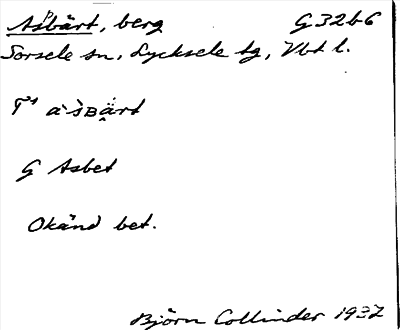 Asbärt, berg G32b6
Sorsele sn, Lycksele tg, Vbt l.
G Asbet
Okänd bet.
Björn Collinder 1937